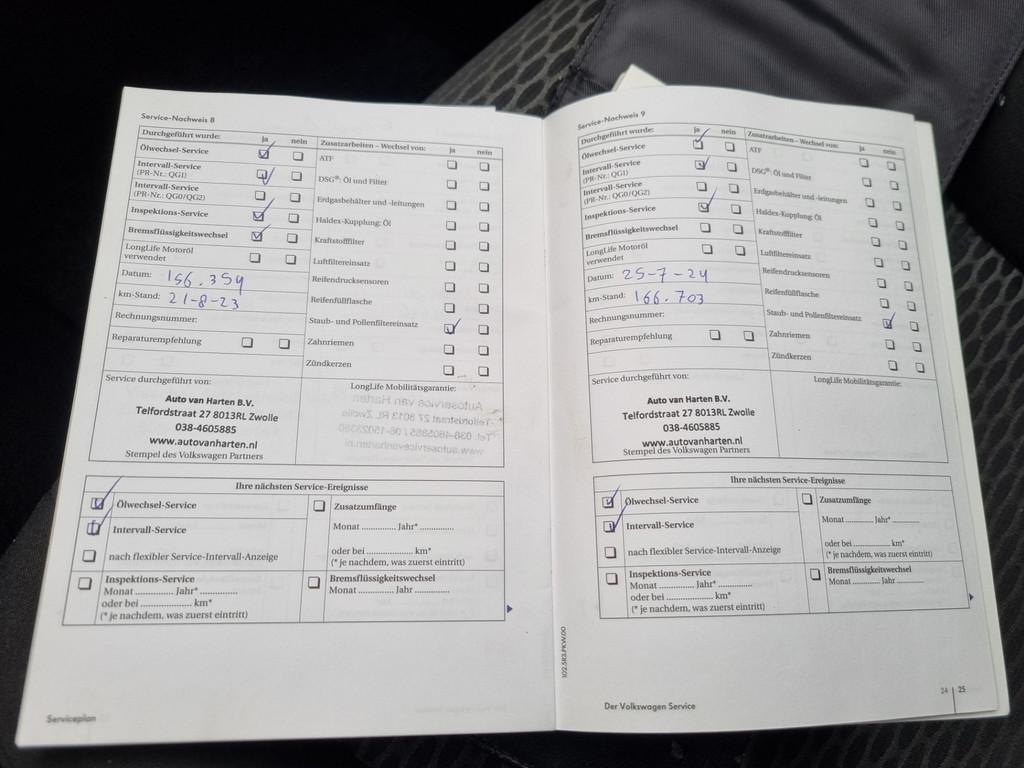 Service-Nachweis 8
Durchgeführt wurde: ja nein
Ölwechsel-Service
Intervall-Service
(PR-Nr.: QG1)
Intervall-Service
(PR-Nr.: QG0/QG2)
Inspektions-Service
Bremsflüssigkeitswechsel
LongLife Motoröl
verwendet
Datum: 156.354
km-Stand: 21-8-23
Rechnungsnummer:
Reparaturempfehlung
Zusatzarbeiten – Wechsel von: ja nein
ATF
DSG®: Öl und Filter
Erdgasbehälter und -leitungen
Haldex-Kupplung: Öl
Kraftstofffilter
Luftfiltereinsatz
Reifendrucksensoren
Reifenfüllflasche
Staub- und Pollenfiltereinsatz
Zahnriemen
Zündkerzen
Service durchgeführt von:
Auto van Harten B.V.
Telfordstraat 27 8013RL Zwolle
038-4605885
www.autovanharten.nl
Stempel des Volkswagen Partners
LongLife Mobilitätsgarantie:
Ihre nächsten Service-Ereignisse
Ölwechsel-Service
Intervall-Service
nach flexibler Service-Intervall-Anzeige
Zusatzumfänge
Monat ............ Jahr* ............
oder bei .................... km*
(* je nachdem, was zuerst eintritt)
Inspektions-Service
Monat ............ Jahr* ............
oder bei .................... km*
(* je nachdem, was zuerst eintritt)
Bremsflüssigkeitswechsel
Monat ............ Jahr ............
Serviceplan
Service-Nachweis 9
Durchgeführt wurde: ja nein
Ölwechsel-Service
Intervall-Service
(PR-Nr.: QG1)
Intervall-Service
(PR-Nr.: QG0/QG2)
Inspektions-Service
Bremsflüssigkeitswechsel
LongLife Motoröl
verwendet
Datum: 25-7-24
km-Stand: 166.703
Rechnungsnummer:
Reparaturempfehlung
Zusatzarbeiten – Wechsel von: ja nein
ATF
DSG®: Öl und Filter
Erdgasbehälter und -leitungen
Haldex-Kupplung: Öl
Kraftstofffilter
Luftfiltereinsatz
Reifendrucksensoren
Reifenfüllflasche
Staub- und Pollenfiltereinsatz
Zahnriemen
Zündkerzen
Service durchgeführt von:
Auto van Harten B.V.
Telfordstraat 27 8013RL Zwolle
038-4605885
www.autovanharten.nl
Stempel des Volkswagen Partners
LongLife Mobilitätsgarantie:
Ihre nächsten Service-Ereignisse
Ölwechsel-Service
Intervall-Service
nach flexibler Service-Intervall-Anzeige
Zusatzumfänge
Monat ............ Jahr* ............
oder bei .................... km*
(* je nachdem, was zuerst eintritt)
Inspektions-Service
Monat ............ Jahr* ............
oder bei .................... km*
(* je nachdem, was zuerst eintritt)
Bremsflüssigkeitswechsel
Monat ............ Jahr ............
102.5R3.PKW.00
Der Volkswagen Service
24 | 25